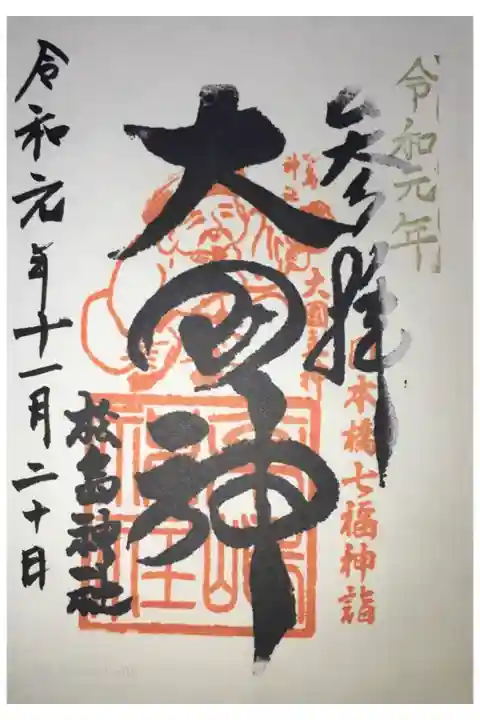 令和元年
参拝
日本橋七福神詣
大国神
松島神社
令和元年十一月二十日